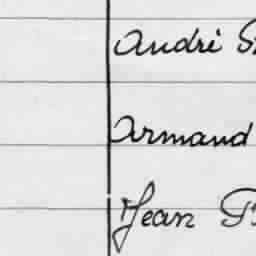 André
Armand
Jean